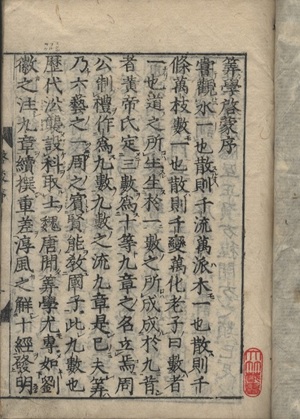 筭學啓蒙序
嘗觀水一也散則千流萬派木一也散則千
條萬枝數一也散則千變萬化老子曰數者
一也道之所生生於一數之所成成於九昔
者黃帝氏定三數爲十等九章之名立焉周
公制禮作爲九數九數之流九章是已夫筭
乃六藝之一周之賓賢能敎國子此九數也
歷代沿襲設科取士魏唐間筭學尤專如劉
徽之注九章續撰重差淳風之解十經發明